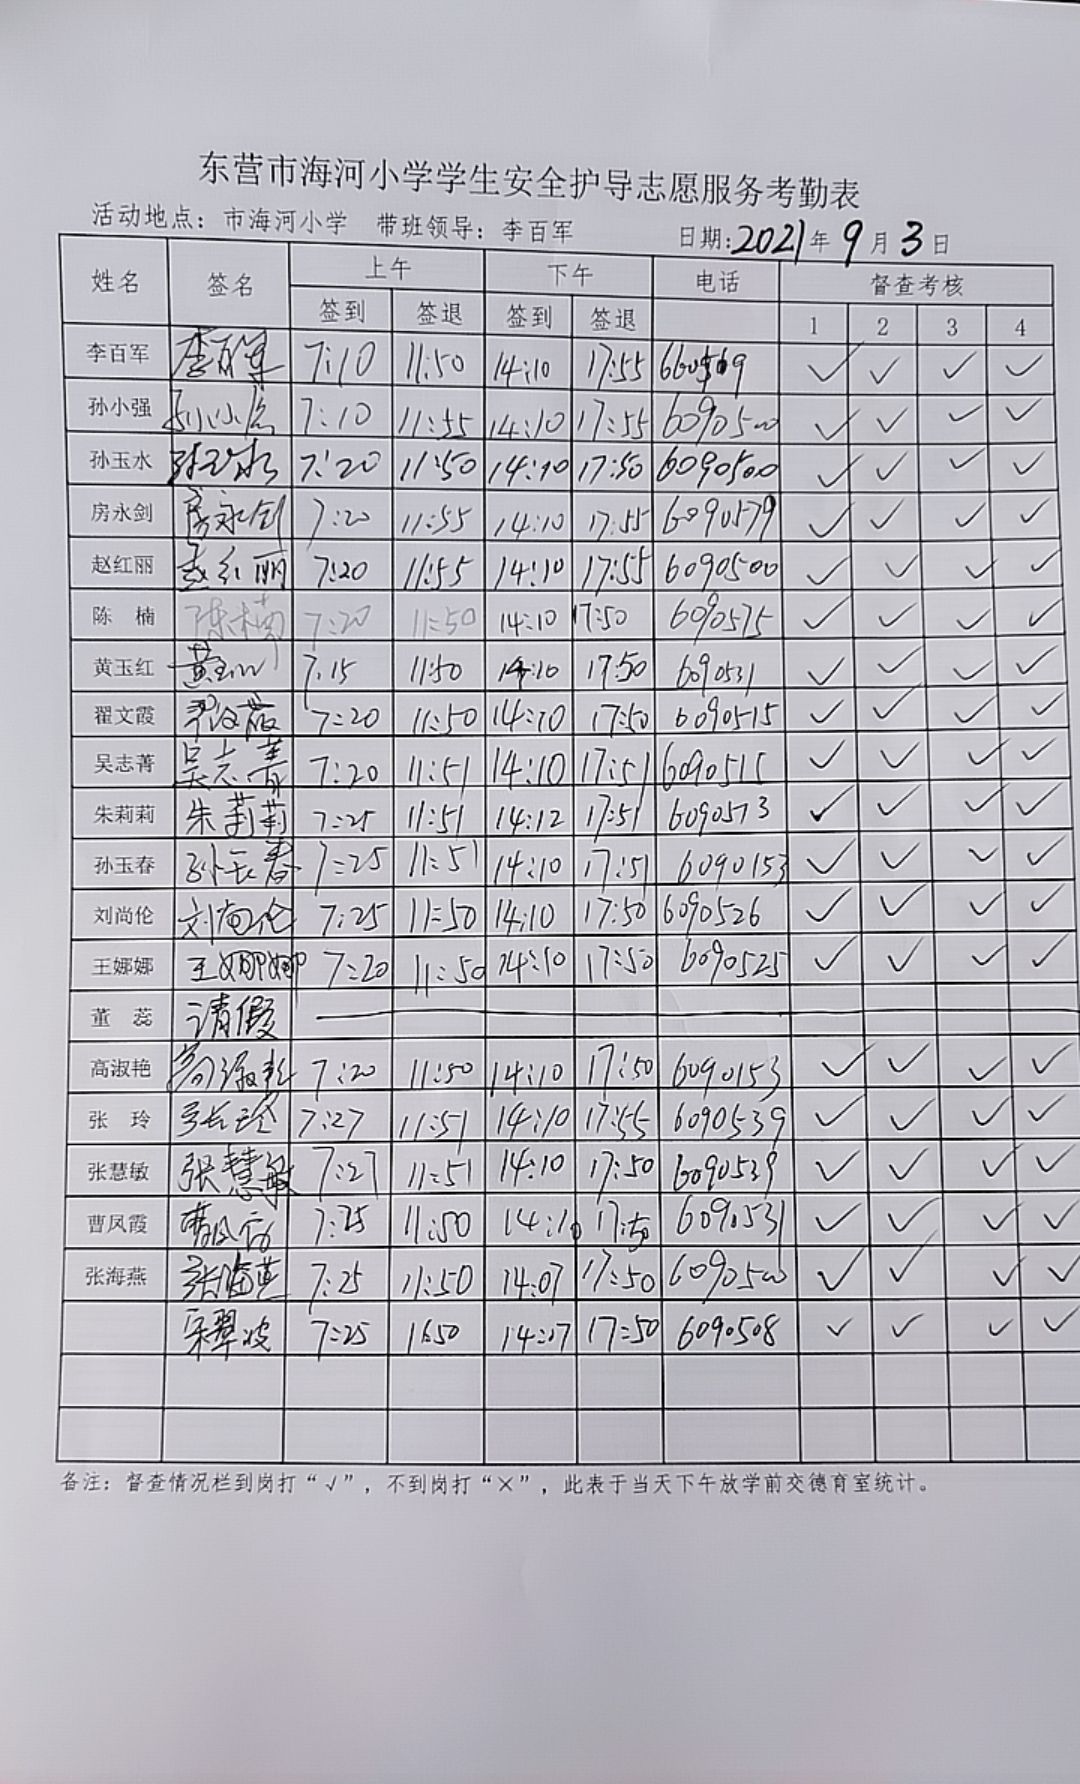 东营市海河小学学生安全护导志愿服务考勤表
活动地点：市海河小学 带班领导：李百军 日期:2021年9月3日
姓名 签名 上午 下午 电话 督查考核
签到 签退 签到 签退 1 2 3 4
李百军 李百军 7:10 11:50 14:10 17:55 ✓ ✓ ✓ ✓
孙小强 孙小强 7:10 11:55 14:10 17:55 6090500 ✓ ✓ ✓ ✓
孙玉水 孙玉水 7:20 11:50 14:10 17:50 6090500 ✓ ✓ ✓ ✓
房永剑 房永剑 7:20 11:55 14:10 17:55 6090579 ✓ ✓ ✓ ✓
赵红丽 赵红丽 7:20 11:55 14:10 17:55 6090500 ✓ ✓ ✓ ✓
陈 楠 陈楠 7:20 11:50 14:10 17:50 6090575 ✓ ✓ ✓ ✓
黄玉红 黄玉红 7:15 11:50 14:10 17:50 6090531 ✓ ✓ ✓ ✓
翟文霞 翟文霞 7:20 11:50 14:10 17:50 6090515 ✓ ✓ ✓ ✓
吴志菁 吴志菁 7:20 11:51 14:10 17:51 6090515 ✓ ✓ ✓ ✓
朱莉莉 朱莉莉 7:25 11:51 14:12 17:51 6090573 ✓ ✓ ✓ ✓
孙玉春 孙玉春 7:25 11:51 14:10 17:51 6090153 ✓ ✓ ✓ ✓
刘尚伦 刘尚伦 7:25 11:50 14:10 17:50 6090526 ✓ ✓ ✓ ✓
王娜娜 王娜娜 7:20 11:50 14:10 17:50 6090525 ✓ ✓ ✓ ✓
董 蕊 请假
高淑艳 高淑艳 7:20 11:50 14:10 17:50 6090153 ✓ ✓ ✓ ✓
张 玲 张玲 7:27 11:51 14:10 17:55 6090539 ✓ ✓ ✓ ✓
张慧敏 张慧敏 7:27 11:51 14:10 17:50 6090539 ✓ ✓ ✓ ✓
曹凤霞 曹凤霞 7:25 11:50 14:10 17:50 6090531 ✓ ✓ ✓ ✓
张海燕 张海燕 7:25 11:50 14:07 17:50 6090500 ✓ ✓ ✓ ✓
7:25 11:50 14:07 17:50 6090508 ✓ ✓ ✓ ✓
备注：督查情况栏到岗打“√”，不到岗打“×”，此表于当天下午放学前交德育室统计。